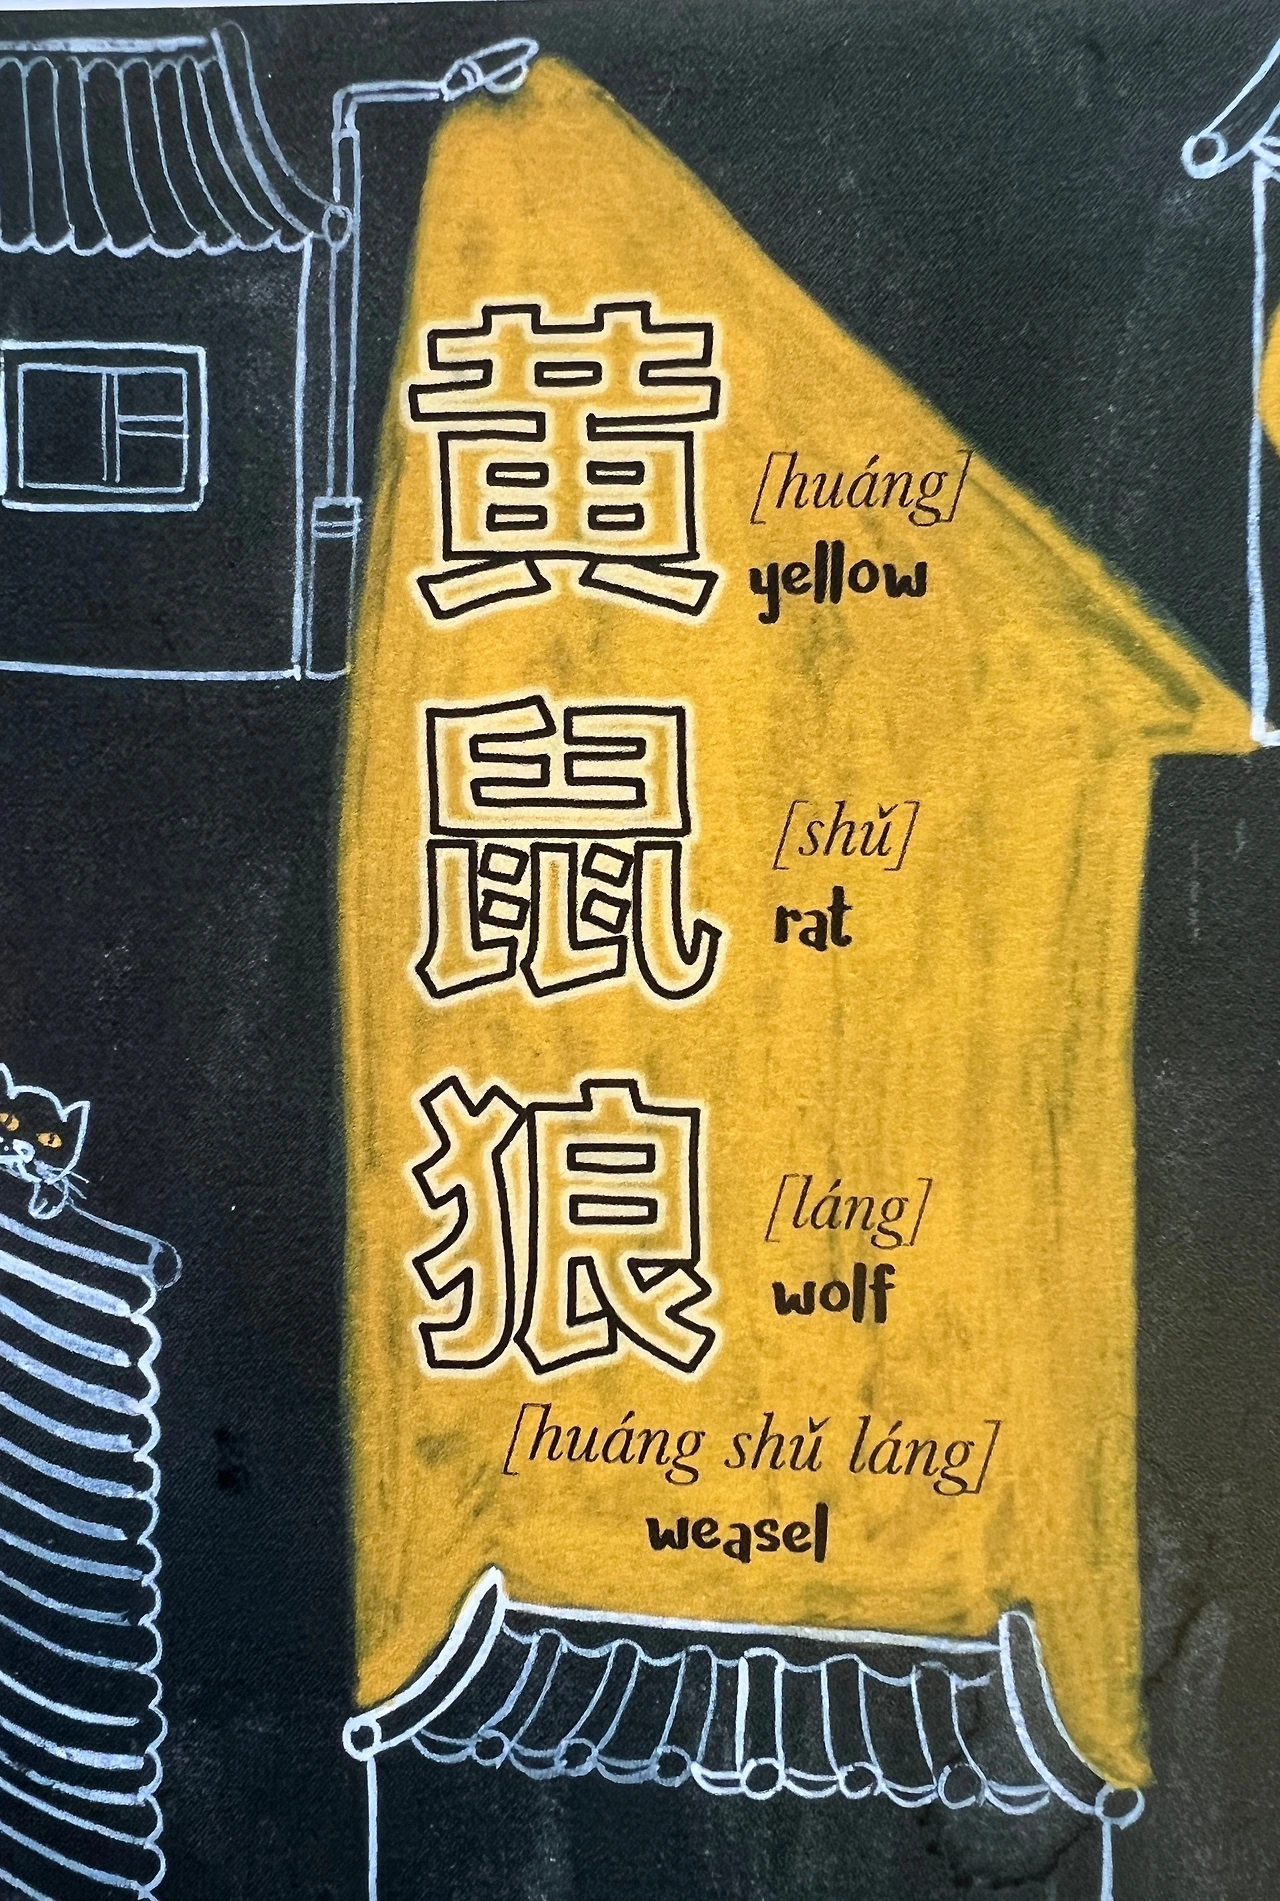 黄
[huáng]
yellow
鼠
[shǔ]
rat
狼
[láng]
wolf
[huáng shǔ láng]
weasel